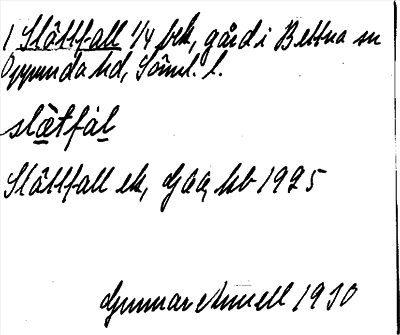 1 Slättfall 1/4 frek, gård i Bettna sn
Oppunda hd, Söml. l.
slätfal
Slättfall ek, GEA, kb 1925
Gunnar Amell 1930